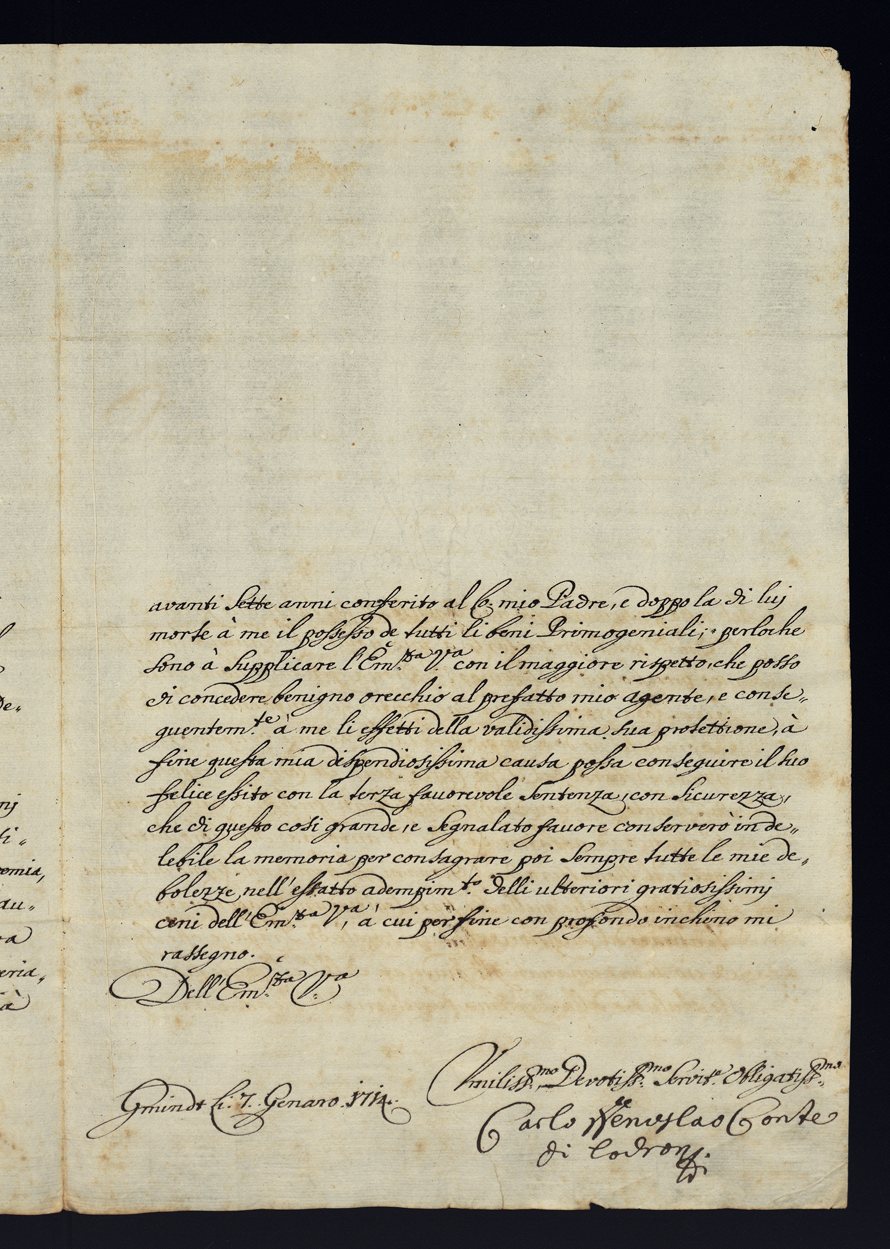 avanti Sette anni conferito al Co: mio Padre, e doppo la di luj
morte à me il possesso de tutti li beni Primogeniali; perloche
sono à Supplicare l'Em:za Va con il maggiore rispetto, che posso
di concedere benigno orecchio al prefatto mio agente, e conse„
quentem:te à me li effetti della validissima sua protettione, à
fine questa mia dispendiosissima causa possa conseguire il suo
felice essito con la terza favorevole Sentenza, con Sicurezza,
che di questo cosi grande, e Segnalato favore conserverò inde„
lebile la memoria per consagrare poi Sempre tutte le mie de„
bolezze nell'essatto adempim:to delli ulteriori gratiosissimj
ceni dell'Em:za Va, à cui per fine con profondo inchino mi
rassegno.
Dell'Em:za Va
Umiliss:mo Devotiss:mo Servit:e Obligatiss:mo
Gmindt li 7. Genaro. 1714.
Carlo Venceslao Conte
di Lodron